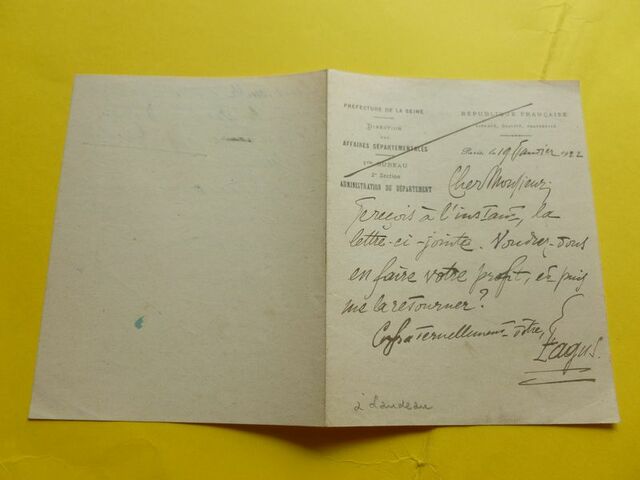 PRÉFECTURE DE LA SEINE
DIRECTION
DES
AFFAIRES DÉPARTEMENTALES
1er BUREAU
2e Section
ADMINISTRATION DU DÉPARTEMENT
RÉPUBLIQUE FRANÇAISE
LIBERTÉ, ÉGALITÉ, FRATERNITÉ
Paris, le 19 Janvier 1922
Cher Monsieur,
Je reçois à l'instant, la
lettre-ci-jointe. Voudrez-vous
en faire votre profit, et puis
me la retourner?
Confraternellement vôtre,
Fagus.
à Landeau